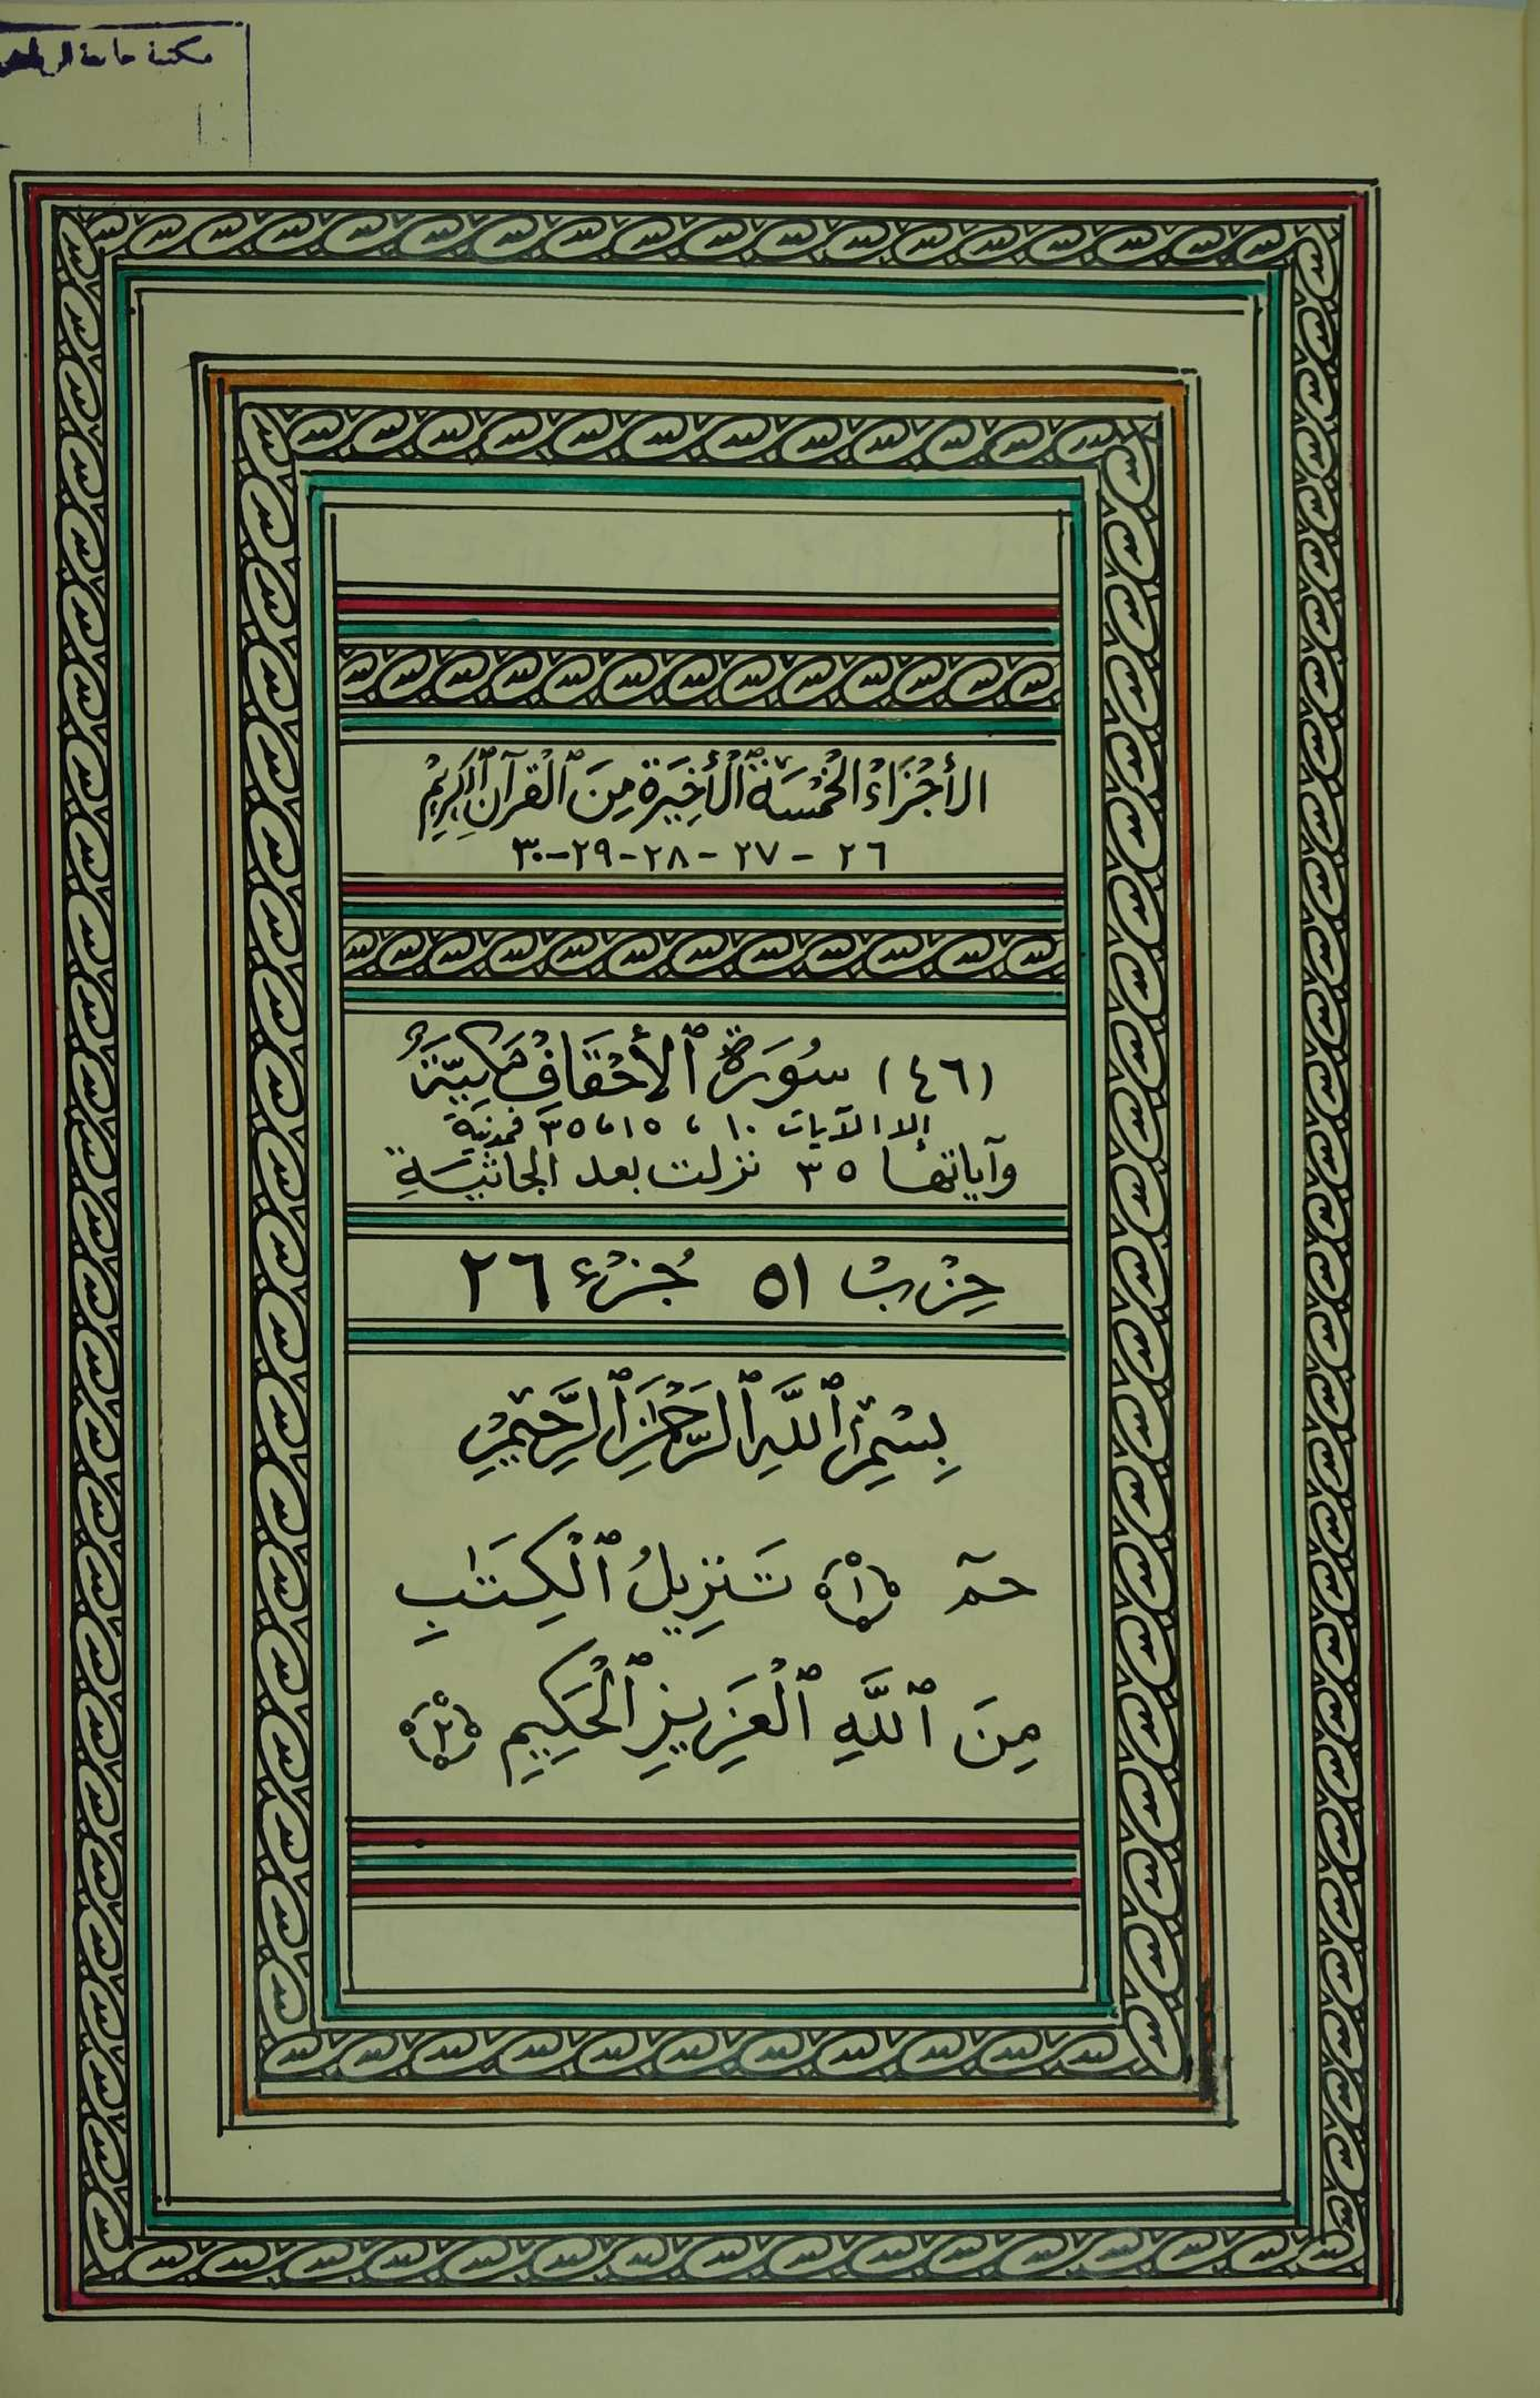 مكتبة جامعة الرياض
الأَجْزَاءُ الْخَمْسَةُ ٱلْأَخِيَرة مِنَ ٱلْقرآن ٱلكَرِيْم
٢٦ - ٢٧ - ٢٨ - ٢٩ - ٣٠
(٤٦) سُورَةُ ٱلأَحْقَافْ مَكِيَّةٌ
إلا الآيات ١٠ ، ١٥ ، ٣٥ فمدنية
وآياتها ٣٥ نزلت بعد الجاثيَةِ
حِزْبْ ٥١ جُزْء ٢٦
بِسْمِ ٱللَّهِ ٱلرَّحْمَٰنِ ٱلرَّحِيْمِ
حمٓ ١ تَنزِيلُ ٱلْكِتَٰبِ
مِنَ ٱللَّهِ ٱلْعَزِيزِ ٱلْحَكِيمِ ٢